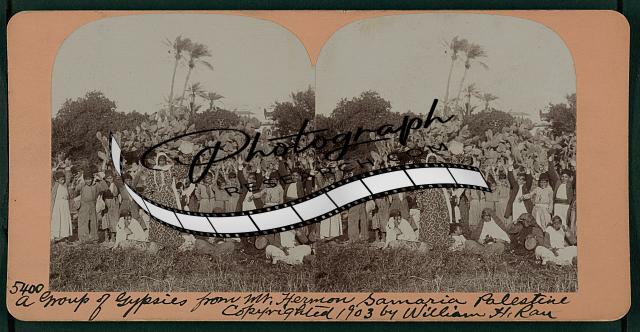 Photograph
RESEARCH.COM
5400
A Group of Gypsies from Mt. Hermon, Samaria Palestine
Copyrighted 1903 by William H. Rau